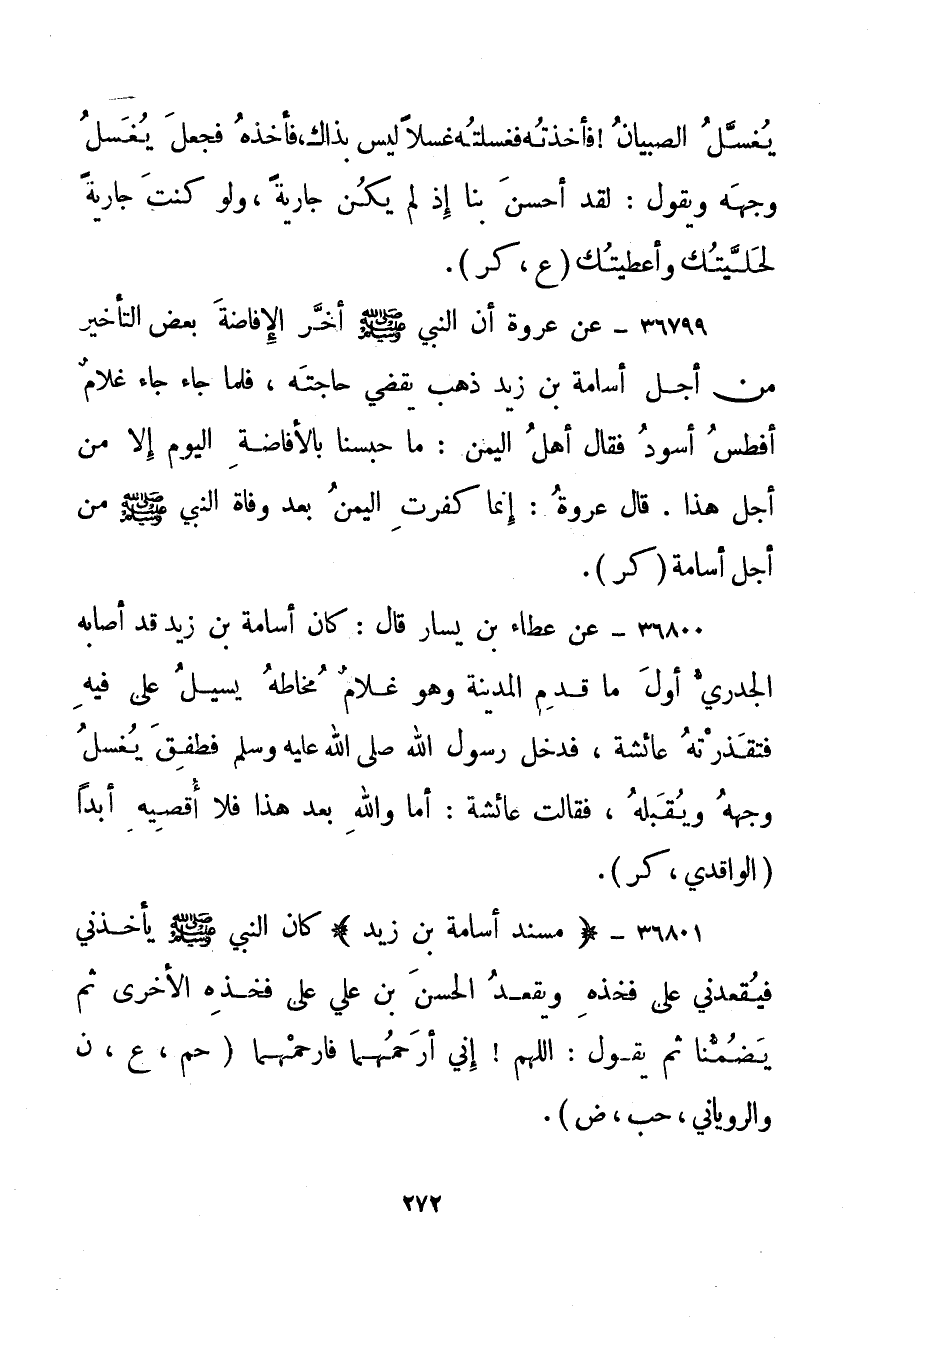 يُغسَّلُ الصبيانُ ! فأخذتُه فغسلتُه غسلاً ليس بذاك، فأخذهُ فجعلَ يُغَسلُ
وجهَه ويقول : لقد أحسنَ بنا إِذ لم يكُن جاريةً ، ولو كنتَ جاريةً
لحَلَّيتُك وأعطيتُك (ع ، كر ) .
٣٦٧٩٩ ـ عن عروة أن النبي ﷺ أخَّر الإِفاضةَ بعض التأخير
من أجل أسامة بن زيد ذهب يقضي حاجتَه ، فلما جاء جاء غلامٌ
أفطسُ أسودُ فقال أهلُ اليمن : ما حبسنا بالأفاضةِ اليوم إِلا من
أجل هذا . قال عروةُ : إِنما كفرتِ اليمنُ بعد وفاة النبي ﷺ من
أجل أسامة ( كر ) .
٣٦٨٠٠ ـ عن عطاء بن يسار قال : كان أسامة بن زيد قد أصابه
الجدريُّ أولَ ما قدِم المدينة وهو غلامٌ مُخاطهُ يسيلُ على فيهِ
فتقذرْتهُ عائشة ، فدخل رسول الله صلى الله عليه وسلم فطفِقَ يُغسلُ
وجههُ ويُقبلهُ ، فقالت عائشة : أما واللهِ بعد هذا فلا أُقصِيهِ أبداً
( الواقدي ، كر ) .
٣٦٨٠١ ـ ﴿ مسند أسامة بن زيد ﴾ كان النبي ﷺ يأخذني
فيُقعدني على فخذهِ ويقعدُ الحسنَ بن علي على فخذِه الأخرى ثم
يَضُمُّنا ثم يقول : اللهم ! إِني أرحَمُهما فارحمْهما ( حم ، ع ، ن
والروياني ، حب ، ض ) .
٢٧٢